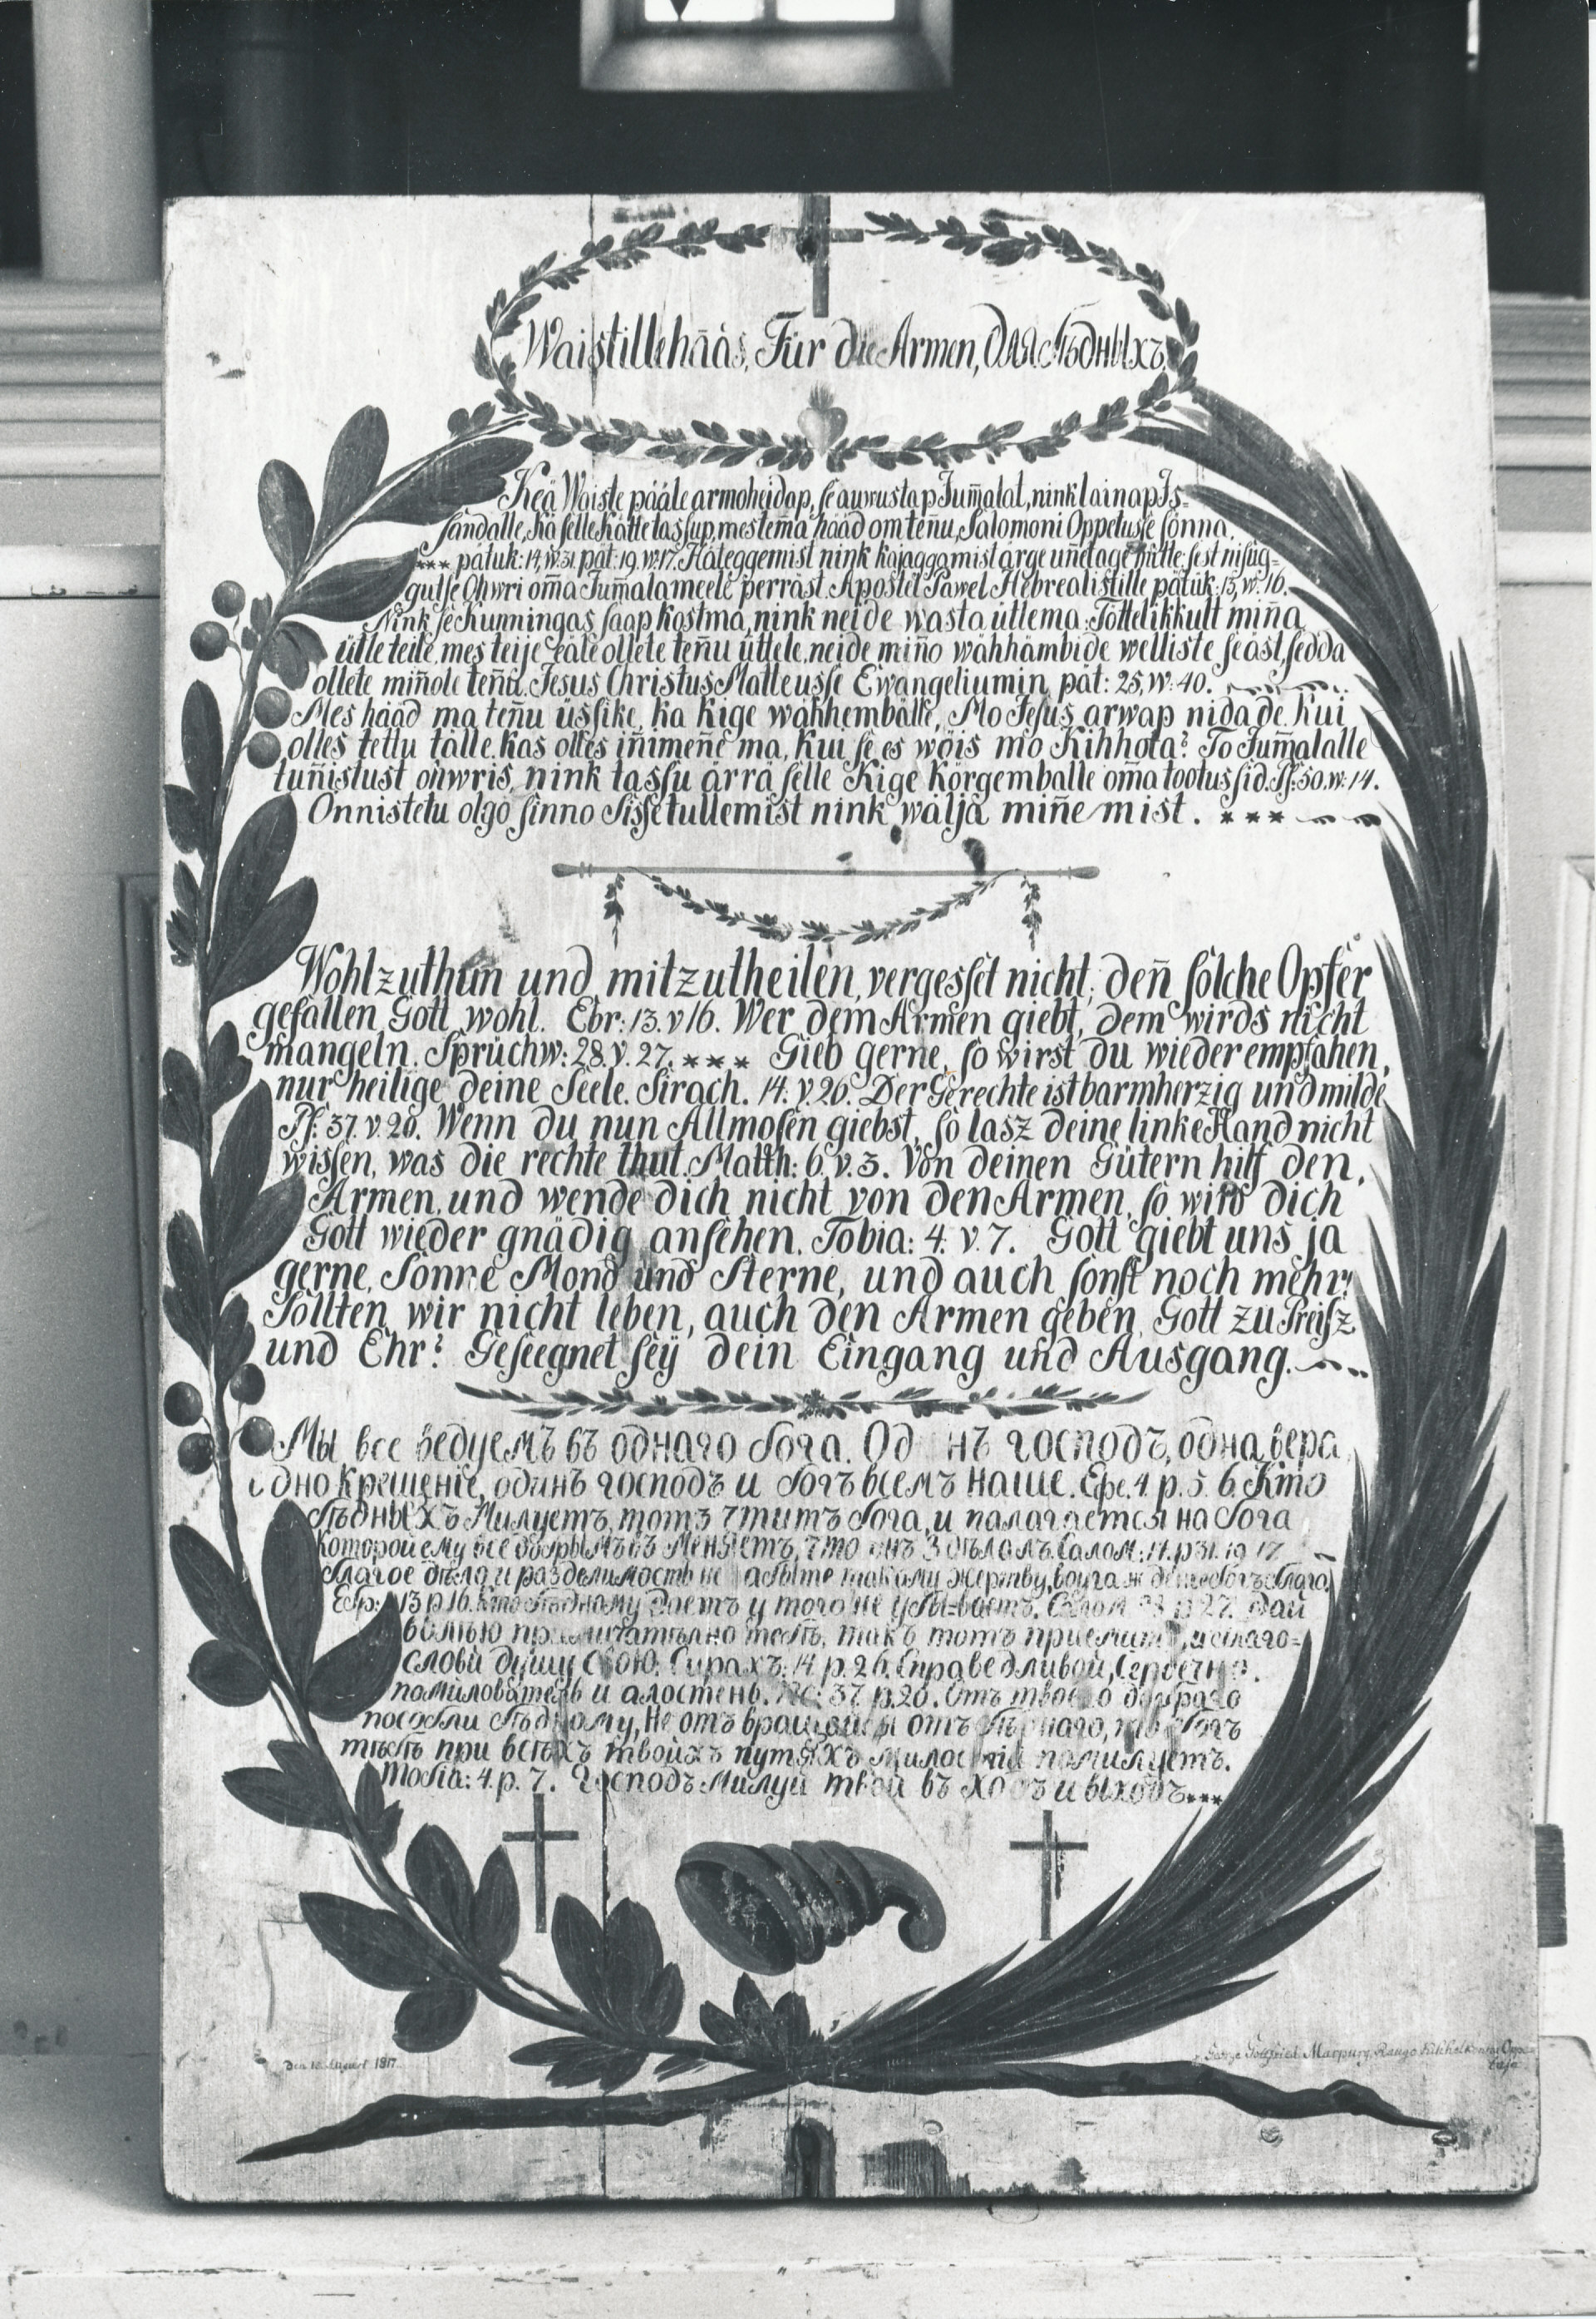 Waistillehääs, Für die Armen, Для бѣдныхъ.
Keä Waiste pääle armoheidap, se auwustap Jum̄alat, nink lainap Is-
sandalle, Ka selle kätte tassup, mes tem̄a hääd om ten̄u, Salomoni Oppetusse sönna,
*** pätük: 14, w. 31. pät: 19. w: 17. Häteggemist nink kajaggamist ärge un̄etage mitte: sest nisug-
gutse Ohwri om̄a Jum̄ala meele perräst. Apostel Pawel Hebrealistille pätük: 13, w: 16.
Nink se Kunningas saap kostma, nink neide wasta ütlema: Töttelikkult min̄a
ütle teile, mes teije eäle ollete ten̄u üttele, neide min̄o wähhämbide welliste seäst, sedda
ollete min̄ole ten̄u. Jesus Christus Matteusse Ewangeliumin, pät: 25, w: 40.
Mes hääd ma ten̄u üssike, ka Kige wähhembälle, Mo Jesus arwap nida de, kui
olles tettu tälle. kas olles in̄imen̄e ma, kui se es wöis mo Kihhota? To Jum̄alalle
tun̄istust ohwris, nink tassu ärrä selle Kige Körgemballe om̄a tootussid. Ps: 50. w: 14.
Onnistetu olgo sinno Sissetullemist nink wälja min̄emist. ***
Wohlzuthun und mitzutheilen, vergesset nicht; den̄ solche Opfer
gefallen Gott wohl. Ebr: 13. v 16. Wer dem Armen giebt, dem wirds nicht
mangeln. Sprüchw: 28. v. 27. *** Gieb gerne, so wirst du wieder empfahen,
nur heilige deine Seele. Sirach. 14: v. 26. Der Gerechte ist barmherzig und milde
Ps: 37. v. 26. Wenn du nun Allmosen giebst, so lasz deine linke Hand nicht
wissen, was die rechte thut. Matth: 6. v. 3. Von deinen Gütern hilf den,
Armen, und wende dich nicht von den Armen, so wird dich
Gott wieder gnädig ansehen. Tobia: 4. v. 7. Gott giebt uns ja
gerne, Sonne Mond und Sterne, und auch sonst noch mehr;
Sollten wir nicht leben, auch den Armen geben, Gott zu Preisz
und Ehr? Geseegnet sey dein Eingang und Ausgang.
Мы все ведуемъ въ однаго бога. Од нъ господъ, одна вера,
дно крещенiе, одинъ господъ и богъ всемъ наше. Ефе. 4. р. 5. 6. Кто
бѣдныхъ Милуетъ, тотъ чтитъ бога, и палагается на бога
которой ему все Салом: 14. р 31. 19 17
благое дѣло и разделимость не такому жертву,
Евр: 13 р. 16. кто бѣдному даетъ у того не 28 р 27. Дай
такъ тотъ
слови душу свою. Сирахъ: 14 р. 26. Справедливой, Сердечно.
помилователь и 37 р. 26. Отъ твоего добраго
пособли бѣдному, Не отъ вращайся отъ бѣднаго, богъ
тебѣ при всѣхъ твоихъ путяхъ помилуетъ.
Товiа: 4. р. 7. Господъ милуй твой въ ходъ и выходъ. ***
Den 10. August 1817.
George Gottfried Marpurg, Raugo